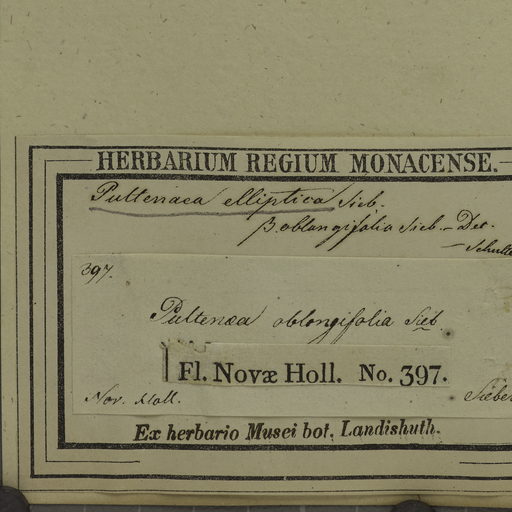 HERBARIUM REGIUM MONACENSE.
Pultenaea elliptica Sieb.
β. oblongifolia Sieb - Det.
Schulte
397.
Pultenæa oblongifolia Sieb
Fl. Novæ Holl. No. 397.
Nov. Holl. Sieber
Ex herbario Musei bot. Landishuth.